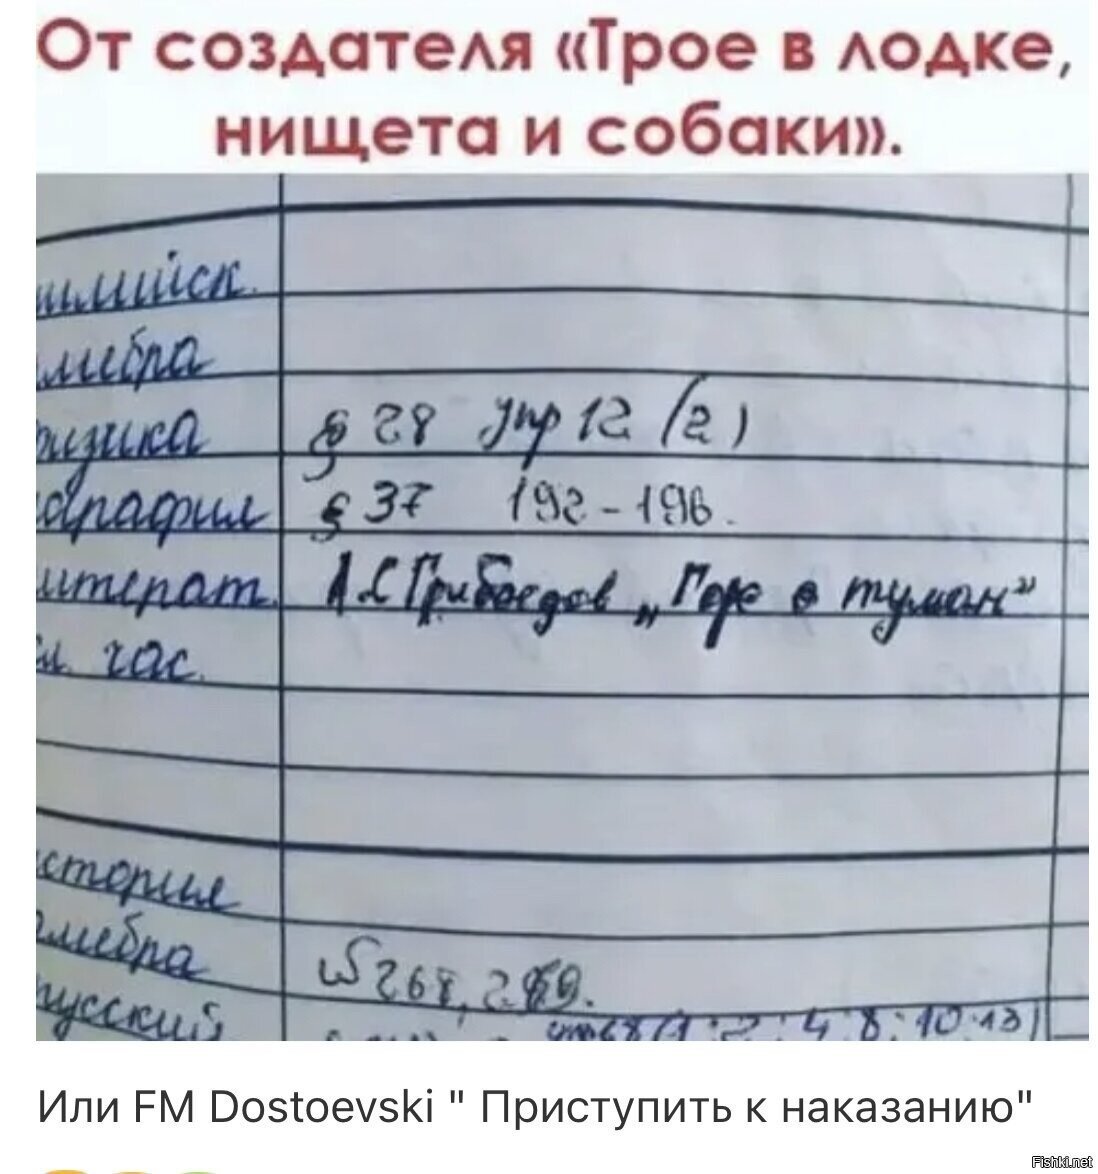 От создателя «Трое в лодке,
нищета и собаки».
имийск.
гебра
физика § 28 упр 12 (2)
ография § 37 192-196.
итерат. А.С Грибоедов „Горе о туман”
л. час.
стория
лгебра № 268, 269.
русский упр 68 (1; 2; 4; 8; 10; 13)
Или FM Dostoevski " Приступить к наказанию"
Fishki.net